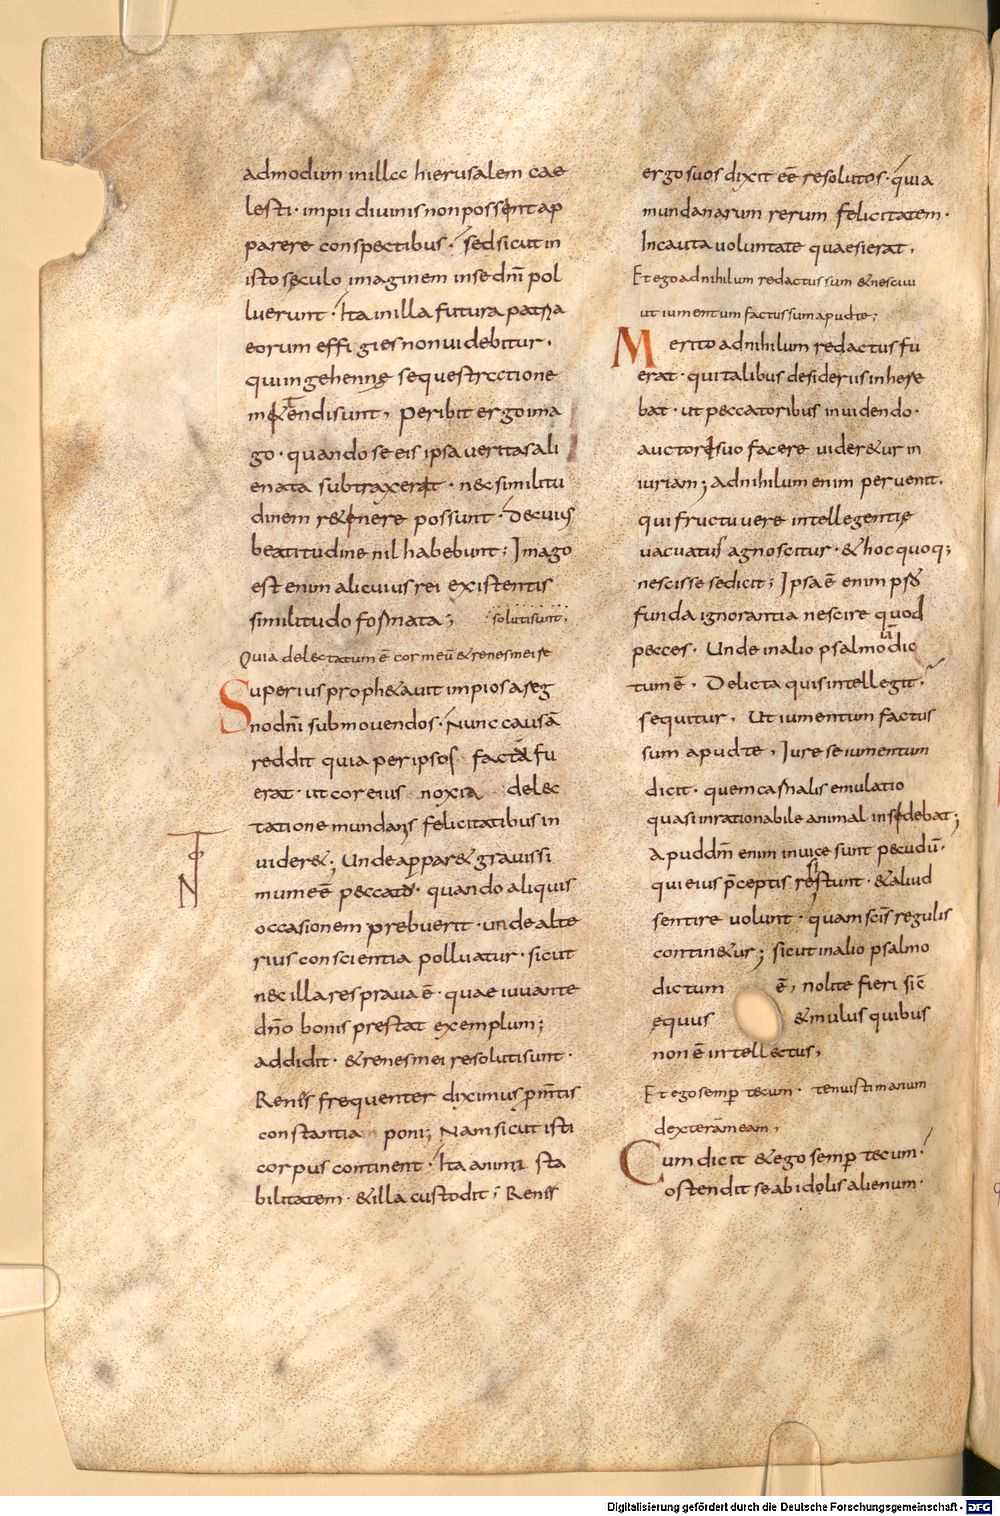 admodum in illcc hierusalem cae
lesti· impii diuinis non possent ap
parere conspectibus· sed sicut in
isto sęculo imaginem in se dnī pol
luerunt· Ita in illa futura patria
eorum effigies non uidebitur·
qui in gehennę sequestrcctione
mer&endi sunt, peribit ergo ima
go· quando se eis ipsa ueritas ali
enata subtraxerit· nec similitu
dinem r&inere possunt· Decuius
beatitudine nil habebunt; Imago
est enim alicuius rei existentis
similitudo formata; solutisunt,
Quia delectatum ē cor meū & renes mei re
Superius proph&a uit impios a reg
no dnī submouendos· Nunc causā
reddit quia per ipsos facta fu
erat· ut cor eius noxia delec
tatione mundanis felicitatibus in
uider&; Unde appar& grauissi
mum eē peccatū· quando aliquis
occasionem prebuerit· unde alte
rius conscientia polluatur· sicut
nec illa res praua ē· quae iuuante
dnō bonis prestat exemplum;
addidit· & renes mei resoluti sunt·
Renes frequenter diximus p mtis
constantia poni; Nam sicut isti
corpus continent· Ita animi sta
bilitatem· & illa custodit; Renes
ergo suos dixit eē resolutos· quia
mundanarum rerum felicitatem·
Incauta uoluntate quaesierat,
Et ego ad nihilum redactus sum & nesciui
ut iumentum factus sum apud te;
Merito ad nihilum redactus fu
erat· qui talibus desideriis inhere
bat· ut peccatoribus inuidendo·
auctori suo facere uider&ur in
iuriam; Ad nihilum enim peruenit·
qui fructu uere intellegentię
uacuatus agnoscitur· & hoc quoq;
nescisse se dicit; Ipsa ē enim pro
funda ignorantia nescire quod
pecces· Unde in alio psalmo dic
tum ē, Delicta quis intellegit·
sequitur, Ut iumentum factus
sum apud te, Iure se iumentum
dicit· quem carnalis emulatio
quasi inrationabile animal insidebat;
Apud dnm enim inuice sunt pecudū·
qui eius pceptis resistunt· & aliud
sentire uolunt· quam scīs regulis
contin&ur; sicut in alio psalmo
dictum ē, nolite fieri sic̄
equus & mulus quibus
non ē intellectus,
Et ego semp tecum· tenuisti manum
dexterā meam,
Cum dicit & ego semp tecum·
ostendit se ab idolis alienum·
Digitalisierung gefördert durch die Deutsche Forschungsgemeinschaft - DFG